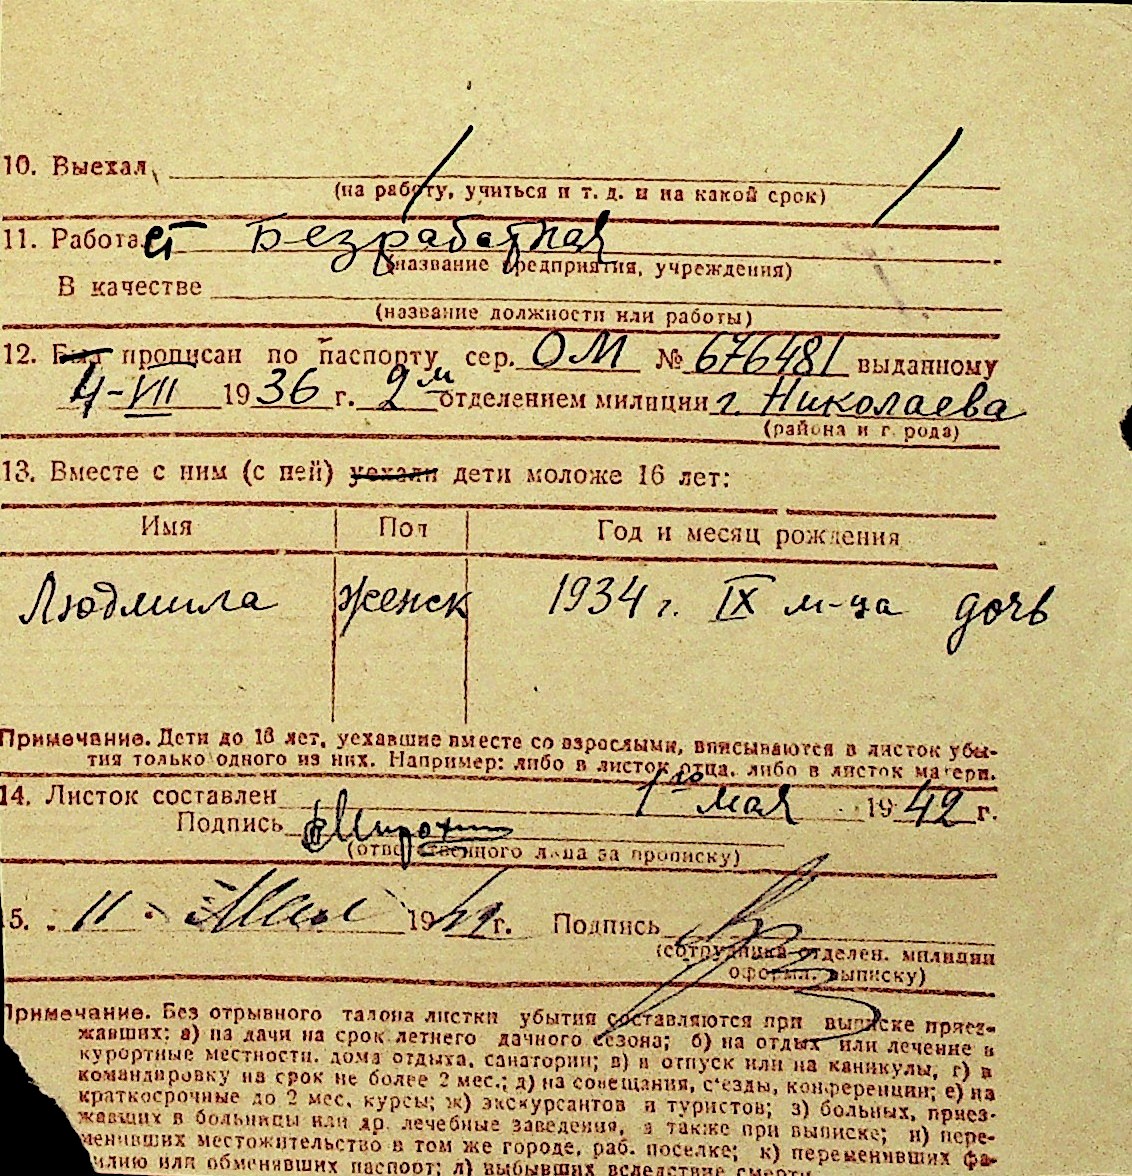 10. Выехал
(на работу, учиться и т. д. и на какой срок)
11. Работает Безработная
(название предприятия, учреждения)
В качестве
(название должности или работы)
12. Был прописан по паспорту сер. ОМ № 676481 выданному
4-VII 1936 г. 2м отделением милиции г. Николаева
(района и города)
13. Вместе с ним (с ней) уехали дети моложе 16 лет:
Имя Пол Год и месяц рождения
Людмила женск 1934 г. IX м-ца дочь
Примечание. Дети до 16 лет, уехавшие вместе со взрослыми, вписываются в листок убы-
тия только одного из них. Например: либо в листок отца, либо в листок матери.
14. Листок составлен 1го мая 1942 г.
Подпись
(ответственного лица за прописку)
15. 11 Мая 19 г. Подпись
(сотрудника отделен. милиции
оформ. выписку)
Примечание. Без отрывного талона листки убытия составляются при выписке приез-
жавших: а) на дачи на срок летнего дачного сезона; б) на отдых или лечение в
курортные местности, дома отдыха, санатории; в) в отпуск или на каникулы, г) в
командировку на срок не более 2 мес.; д) на совещания, с'езды, конференции; е) на
краткосрочные до 2 мес. курсы; ж) экскурсантов и туристов; з) больных, приез-
жавших в больницы или др. лечебные заведения, а также при выписке; и) пере-
менивших местожительство в том же городе, раб. поселке; к) переменивших фа-
милию или обменявших паспорт; л) выбывших вследствие смерти.